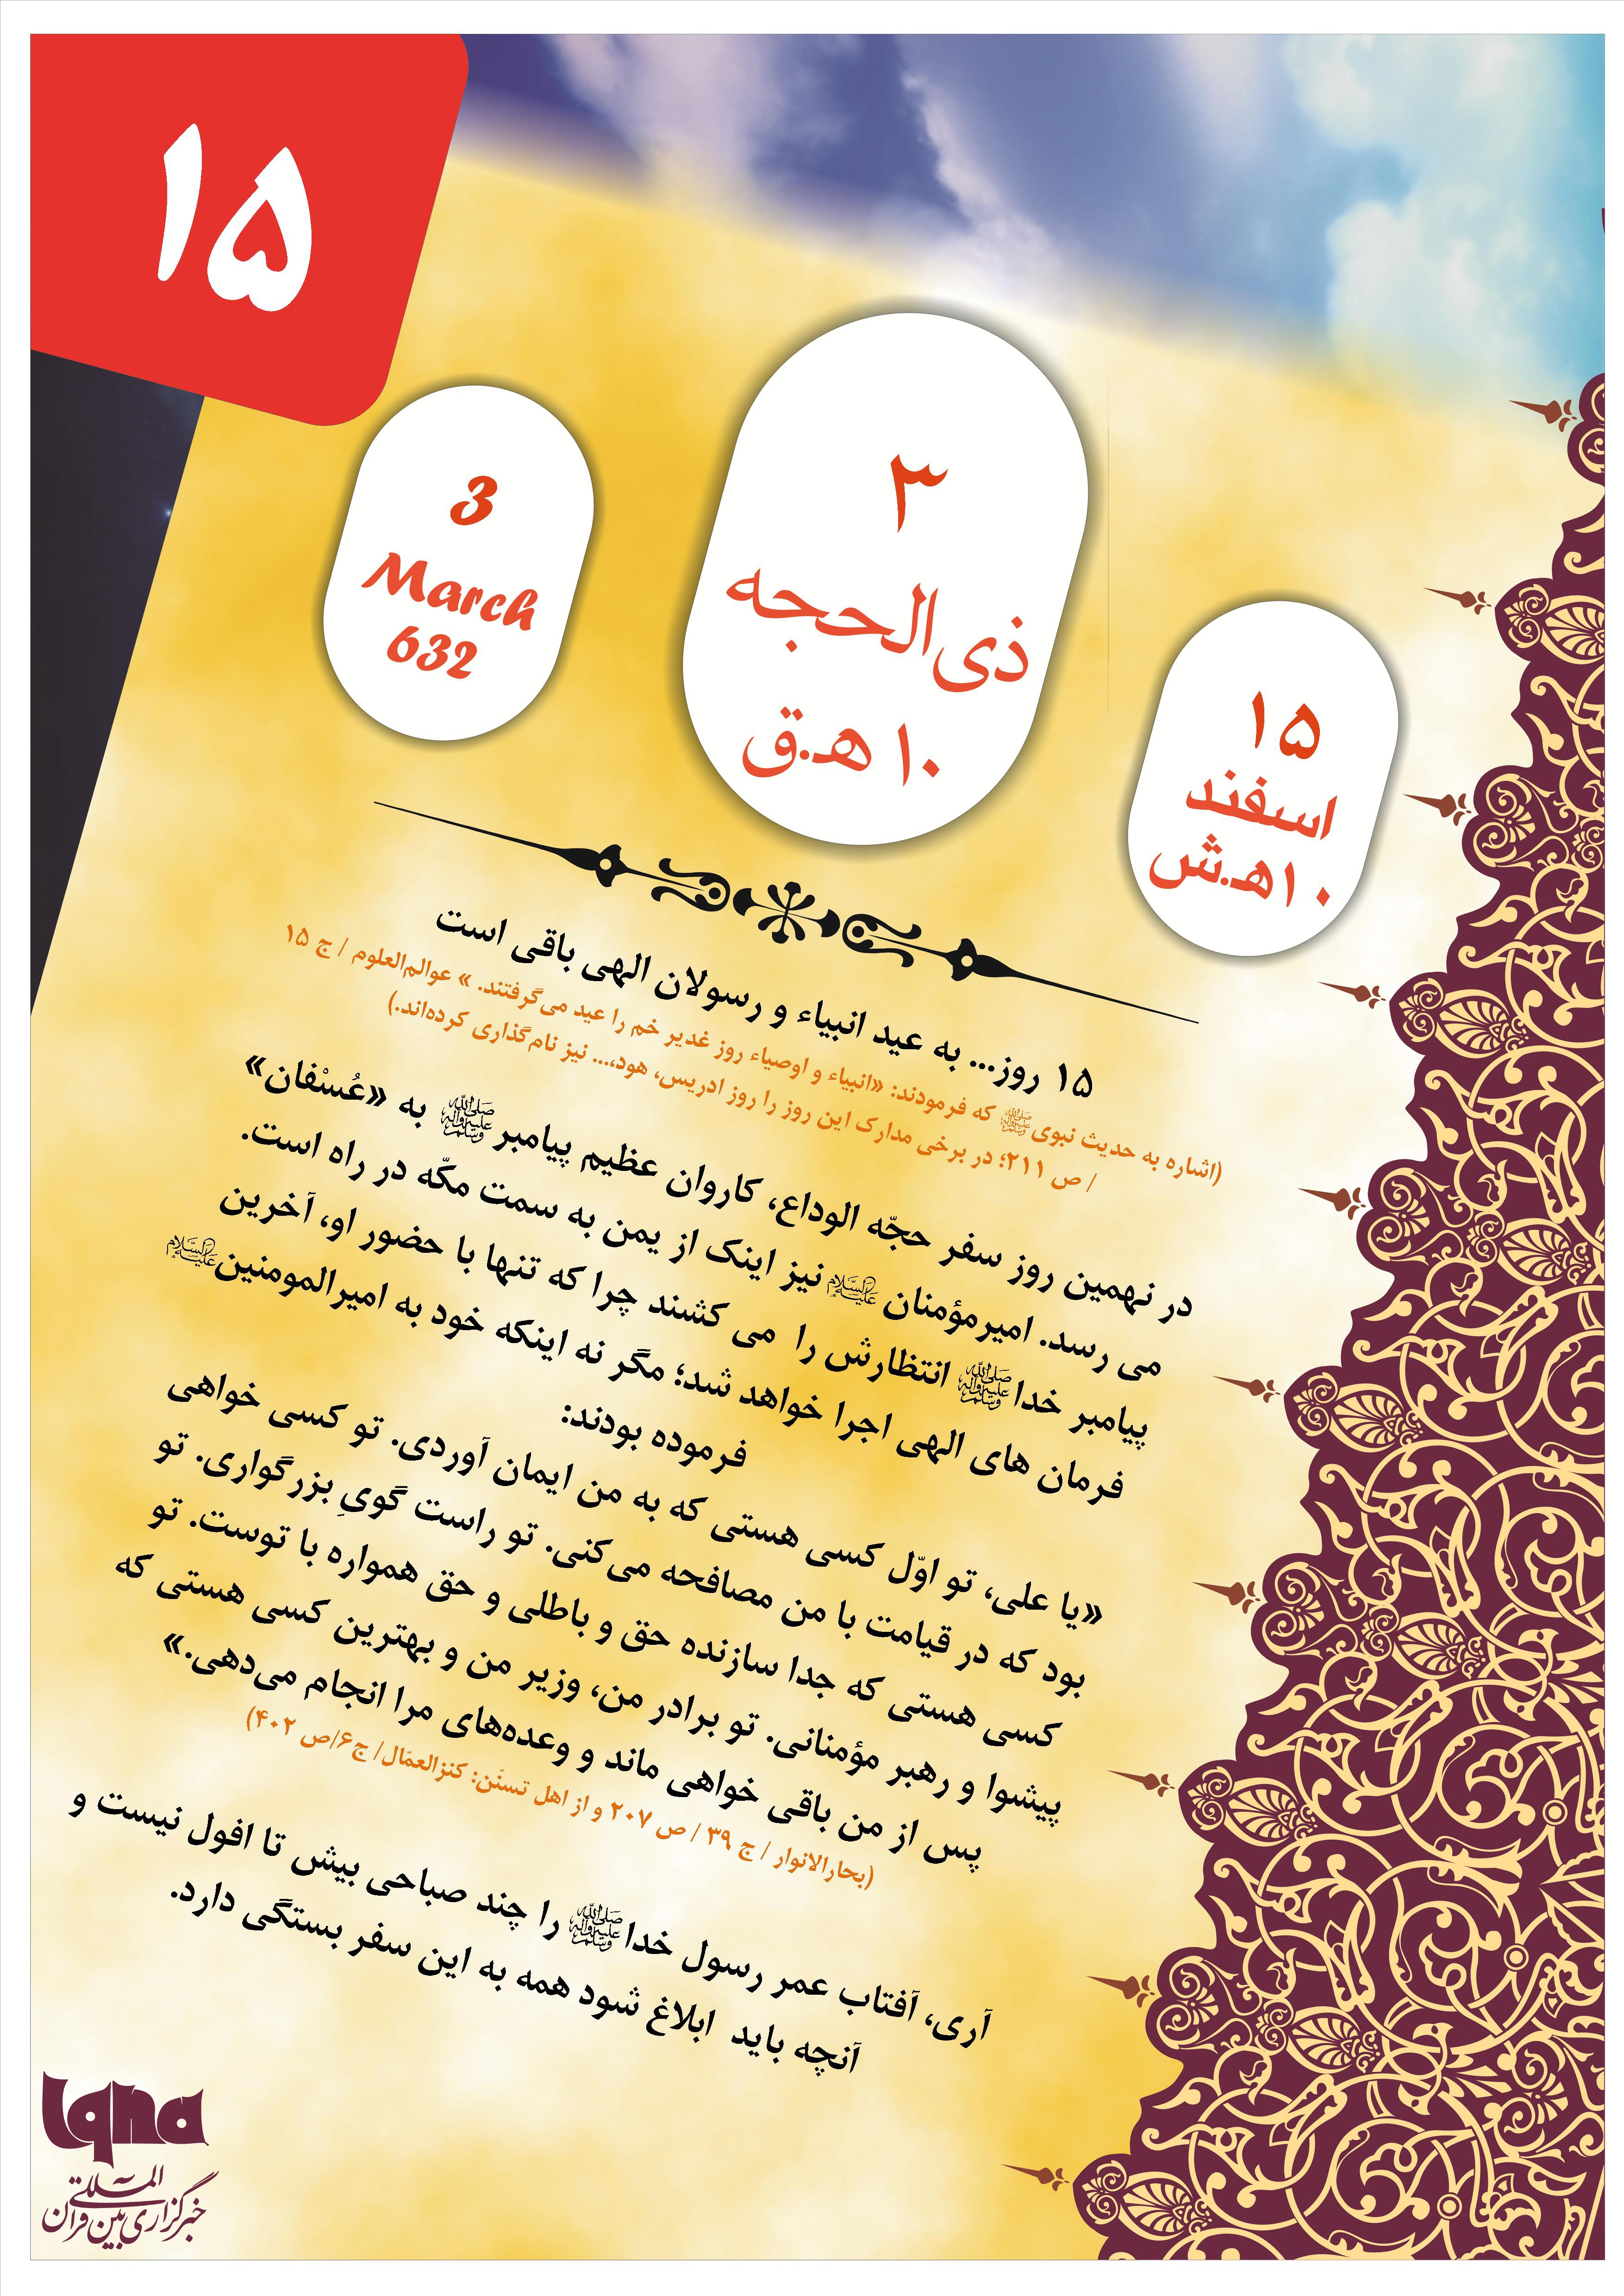 ۱۵
3
March
632
۳
ذی‌الحجه
۱۰ هـ.ق
۱۵
اسفند
۱۰هـ.ش
۱۵ روز... به عید انبیاء و رسولان الهی باقی است
(اشاره به حدیث نبوی ﷺ که فرمودند: «انبیاء و اوصیاء روز غدیر خم را عید می‌گرفتند. » عوالم‌العلوم / ج ۱۵
/ ص ۲۱۱؛ در برخی مدارک این روز را روز ادریس، هود،... نیز نام‌گذاری کرده‌اند.)
در نهمین روز سفر حجّه الوداع، کاروان عظیم پیامبر صلی الله علیه وآله وسلم به «عُسْفان»
می رسد. امیرمؤمنان علیه السلام نیز اینک از یمن به سمت مکّه در راه است.
پیامبر خدا صلی الله علیه وآله وسلم انتظارش را می کشند چرا که تنها با حضور او، آخرین
فرمان های الهی اجرا خواهد شد؛ مگر نه اینکه خود به امیرالمومنین علیه السلام
فرموده بودند:
«یا علی، تو اوّل کسی هستی که به من ایمان آوردی. تو کسی خواهی
بود که در قیامت با من مصافحه می‌کنی. تو راست گویِ بزرگواری. تو
کسی هستی که جدا سازنده حق و باطلی و حق همواره با توست. تو
پیشوا و رهبر مؤمنانی. تو برادر من، وزیر من و بهترین کسی هستی که
پس از من باقی خواهی ماند و وعده‌های مرا انجام می‌دهی.»
(بحارالانوار / ج ۳۹ / ص ۲۰۷ و از اهل تسنّن: کنزالعمّال/ ج۶/ص ۴۰۲)
آری، آفتاب عمر رسول خدا صلی الله علیه وآله وسلم را چند صباحی بیش تا افول نیست و
آنچه باید ابلاغ شود همه به این سفر بستگی دارد.
Iqna
خبرگزاری بین المللی قرآن